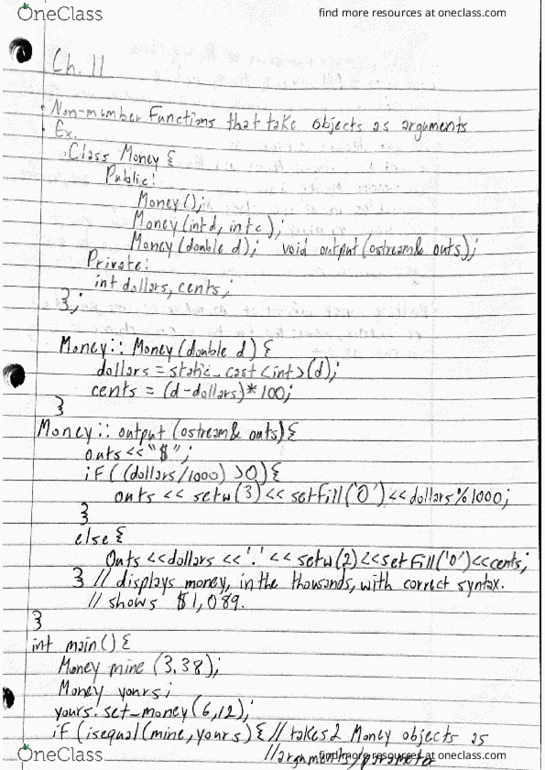 OneClass
find more resources at oneclass.com
Ch. 11
Non-member Functions that take objects as arguments
Ex.
Class Money {
Public:
Money();
Money(int d, int c);
Money(double d); void output(ostream& outs);
Private:
int dollars, cents;
};
Money:: Money(double d) {
dollars = static_cast<int>(d);
cents = (d-dollars)*100;
}
Money:: output (ostream& outs){
outs<<"$";
if ((dollars/1000) >0){
outs << setw(3)<<setfill('0')<<dollars%1000;
}
else {
Outs <<dollars <<'.'<< setw(2)<<setfill('0')<<cents;
} // displays money, in the thousands, with correct syntax.
// shows $1,089.
}
int main() {
Money mine (3.38);
Money yours;
yours.set_money(6,12);
if (isequal(mine, yours) { // takes 2 Money objects as
//argument/parameter
OneClass
find more resources at oneclass.com